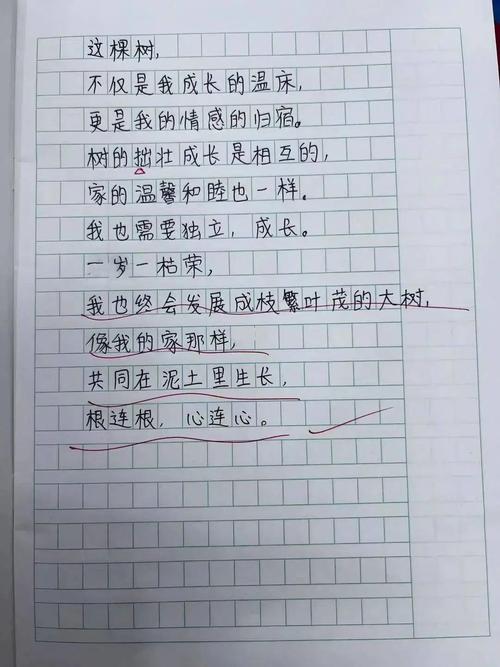 这棵树，
不仅是我成长的温床，
更是我的情感的归宿。
树的拙壮成长是相互的，
家的温馨和睦也一样。
我也需要独立，成长。
一岁一枯荣，
我也终会发展成枝繁叶茂的大树，
像我的家那样，
共同在泥土里生长，
根连根，心连心。